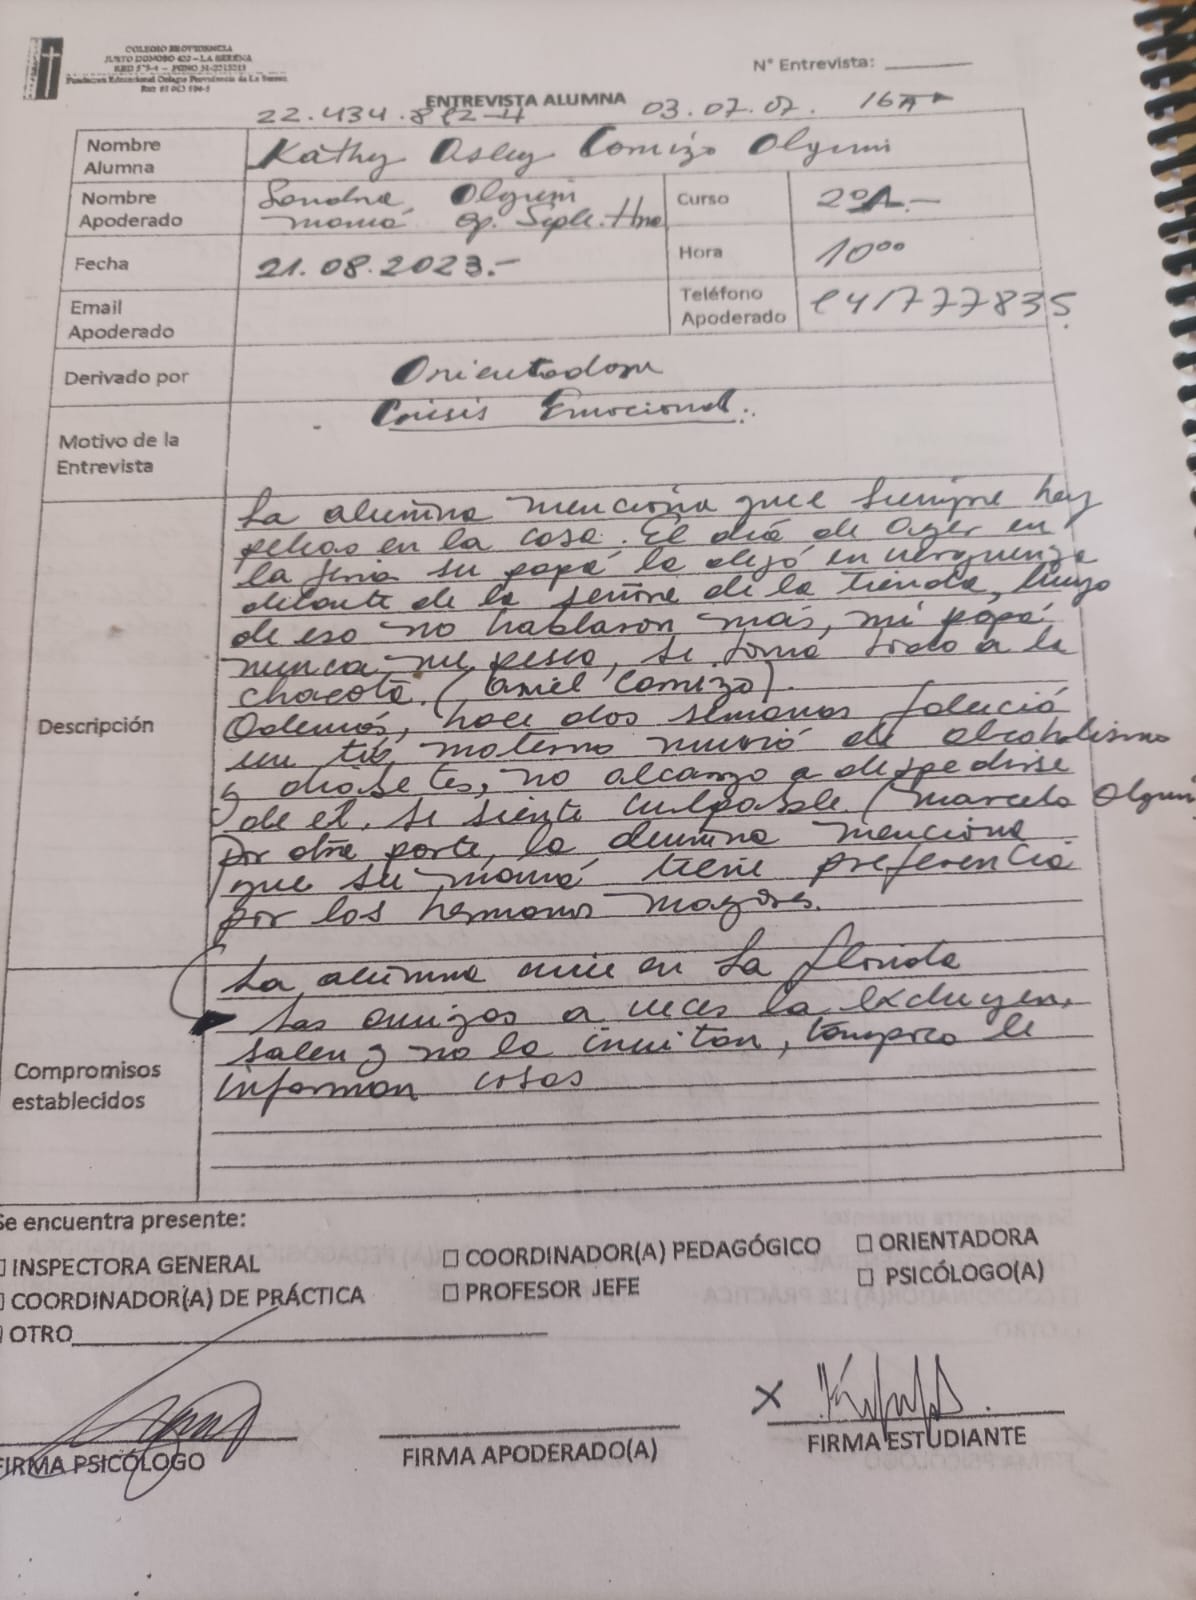 COLEGIO PROVIDENCIA
JUSTO DONOSO 420 – LA SERENA
Fundación Educacional Colegio Providencia de La Serena
N° Entrevista:
ENTREVISTA ALUMNA
03.07.07. 16A
22.434.812-4
Nombre Alumna
Kathy Asley Comizo Olguin
Nombre Apoderado
Sandra Olguin
mamá Ap. Suple. Hna
Curso
2°A.-
Fecha
21.08.2023.-
Hora
10°°
Email Apoderado
Teléfono Apoderado
e41777835
Derivado por
Orientadora
Motivo de la Entrevista
Crisis Emocional.
Descripción
La alumna menciona que siempre hay
peleas en la casa. El día de ayer en
la feria su papá la dejó en verguenza
delante de la señora de la tienda, luego
de eso no hablaron más, mi papá
nunca me pesca, se toma todo a la
chacota. ( Comizo).
Además, hace dos semanas falleció
un tío materno murió de alcoholismo
y diabetes, no alcanzo a despedirse
de el, se siente culpable (Marcelo Olguin
Por otra parte, la alumna menciona
que su mamá tiene preferencia
por los hermanos mayores.
Compromisos establecidos
La alumna vive en La Florida
Las amigas a veces la excluyen,
salen y no la invitan, tampoco le
informan cosas
Se encuentra presente:
INSPECTORA GENERAL
COORDINADOR(A) PEDAGÓGICO
ORIENTADORA
COORDINADOR(A) DE PRÁCTICA
PROFESOR JEFE
PSICÓLOGO(A)
OTRO
X
FIRMA PSICÓLOGO
FIRMA APODERADO(A)
FIRMA ESTUDIANTE